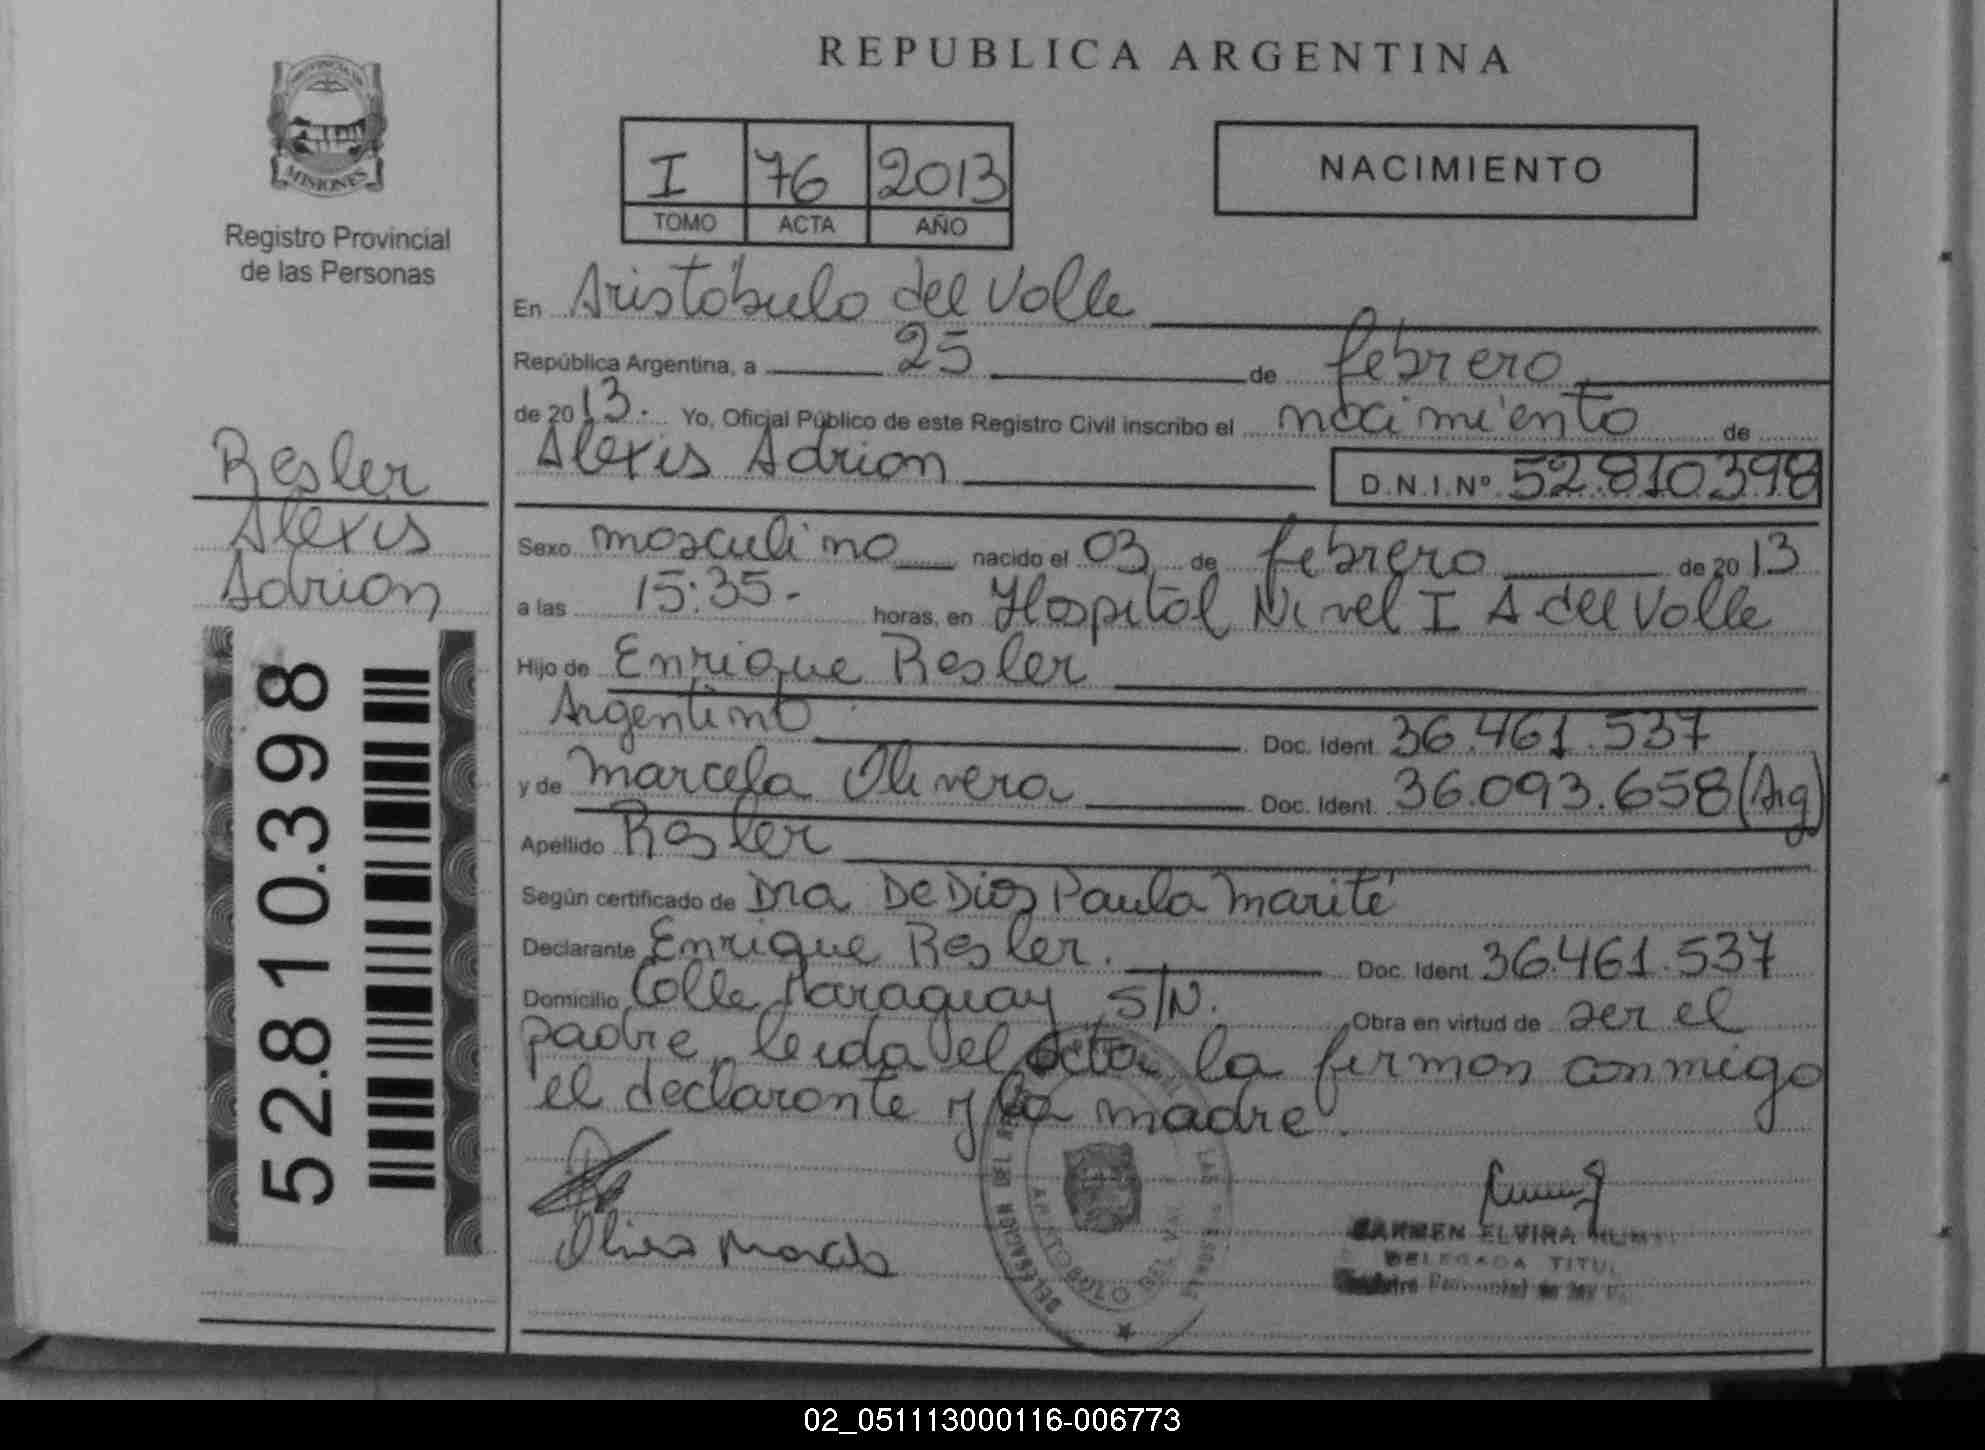 REPUBLICA ARGENTINA
PROVINCIA DE
MISIONES
Registro Provincial
de las Personas
I 76 2013
TOMO ACTA AÑO
NACIMIENTO
En Aristóbulo del Valle
República Argentina, a 25 de febrero
de 2013. Yo, Oficial Público de este Registro Civil inscribo el nacimiento de
Alexis Adrian D.N.I.Nº 52.810.398
Resler
Alexis
Adrian
52.810.398
Sexo masculino nacido el 03 de febrero de 2013
a las 15:35.- horas, en Hospital Nivel I A del Valle
Hijo de Enrique Resler
Argentino Doc. Ident. 36.461.537
y de Marcela Olivera Doc. Ident. 36.093.658 (Arg)
Apellido Resler
Según certificado de Dra De Dios Paula Marité
Declarante Enrique Resler. Doc. Ident. 36.461.537
Domicilio Calle Paraguay S/N. Obra en virtud de ser el
padre, leida el acta la firman conmigo
el declarante y la madre.
Olivera Marcela
DELEGACION DEL
LAS
CARMEN ELVIRA
DELEGADA TITUL
02_051113000116-006773